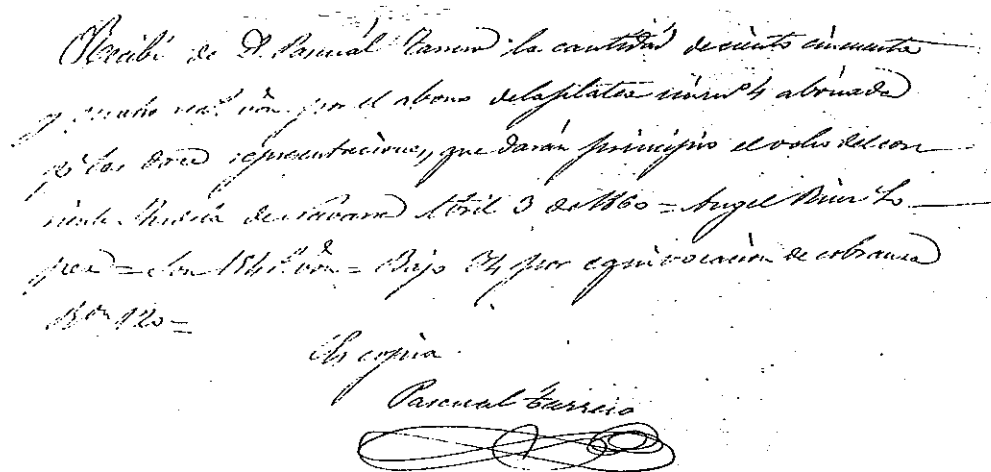 Recibí de D. Pascuál la cantidád de ciento cincuenta
y cuatro r.s vón. por el abono de la platea núm.º 4 abonada
p.ª las doce representaciones, que darán principio el ocho del cor
riente. de Navarra Abril 3 de 1860 = Angel Lo
pez = Son 154 r.s vón. = Bajo 34 por equivocacion de cobranza
R.on 120 =
Es copia.
Pascual